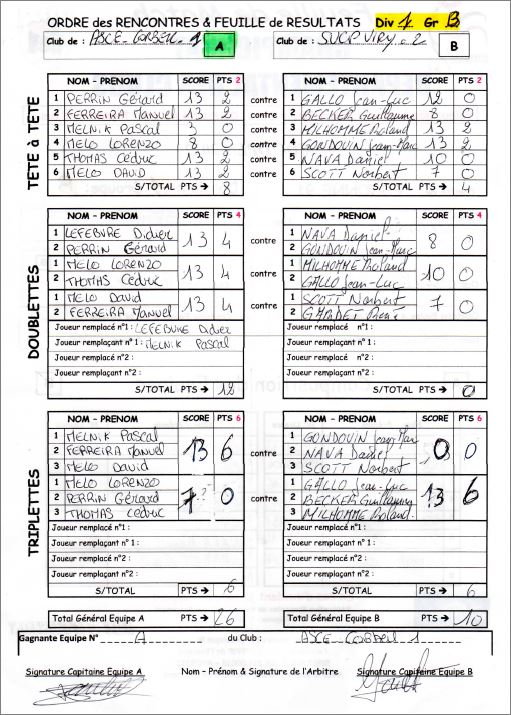 ORDRE des RENCONTRES & FEUILLE de RESULTATS Div 1 Gr B
Club de : ASCE CORBEIL 1 A Club de : SUCP VIRY 2 B
TÊTE à TÊTE
NOM - PRENOM SCORE PTS 2 NOM - PRENOM SCORE PTS 2
1 PERRIN Gérard 13 2 contre 1 GALLO Jean-Luc 12 0
2 FERREIRA Manuel 13 2 contre 2 BECKER Guillaume 8 0
3 MELNIK Pascal 3 0 contre 3 MILHOMME Roland 13 2
4 MELO LORENZO 8 0 contre 4 GONDOUIN Jean-Marc 13 2
5 THOMAS Cédric 13 2 contre 5 NAVA Daniel 10 0
6 MELO DAVID 13 2 contre 6 SCOTT Norbert 7 0
S/TOTAL PTS → 8 S/TOTAL PTS → 4
DOUBLETTES
NOM - PRENOM SCORE PTS 4 NOM - PRENOM SCORE PTS 4
1 LEFEBURE Didier 13 4 contre 1 NAVA Daniel 8 0
2 PERRIN Gérard 2 GONDOUIN Jean-Marc
1 MELO LORENZO 13 4 contre 1 MILHOMME Roland 10 0
2 THOMAS Cédric 2 GALLO Jean-Luc
1 MELO David 13 4 contre 1 SCOTT Norbert 7 0
2 FERREIRA Manuel 2 René
Joueur remplacé n°1 : LEFEBURE Didier Joueur remplacé n°1 :
Joueur remplaçant n°1 : MELNIK Pascal Joueur remplaçant n°1 :
Joueur remplacé n°2 : Joueur remplacé n°2 :
Joueur remplaçant n°2 : Joueur remplaçant n°2 :
S/TOTAL PTS → 12 S/TOTAL PTS → 0
TRIPLETTES
NOM - PRENOM SCORE PTS 6 NOM - PRENOM SCORE PTS 6
1 MELNIK Pascal 1 GONDOUIN Jean-Marc
2 FERREIRA Manuel 13 6 contre 2 NAVA Daniel 0 0
3 MELO David 3 SCOTT Norbert
1 MELO LORENZO 1 GALLO Jean-Luc
2 PERRIN Gérard 7 0 contre 2 BECKER Guillaume 13 6
3 THOMAS Cédric 3 MILHOMME Roland
Joueur remplacé n°1 : Joueur remplacé n°1 :
Joueur remplaçant n°1 : Joueur remplaçant n°1 :
Joueur remplacé n°2 : Joueur remplacé n°2 :
Joueur remplaçant n°2 : Joueur remplaçant n°2 :
S/TOTAL PTS → 6 S/TOTAL PTS → 6
Total Général Equipe A PTS → 26 Total Général Equipe B PTS → 10
Gagnante Equipe N° A du Club : ASCE CORBEIL 1
Signature Capitaine Equipe A Nom - Prénom & Signature de l'Arbitre Signature Capitaine Equipe B